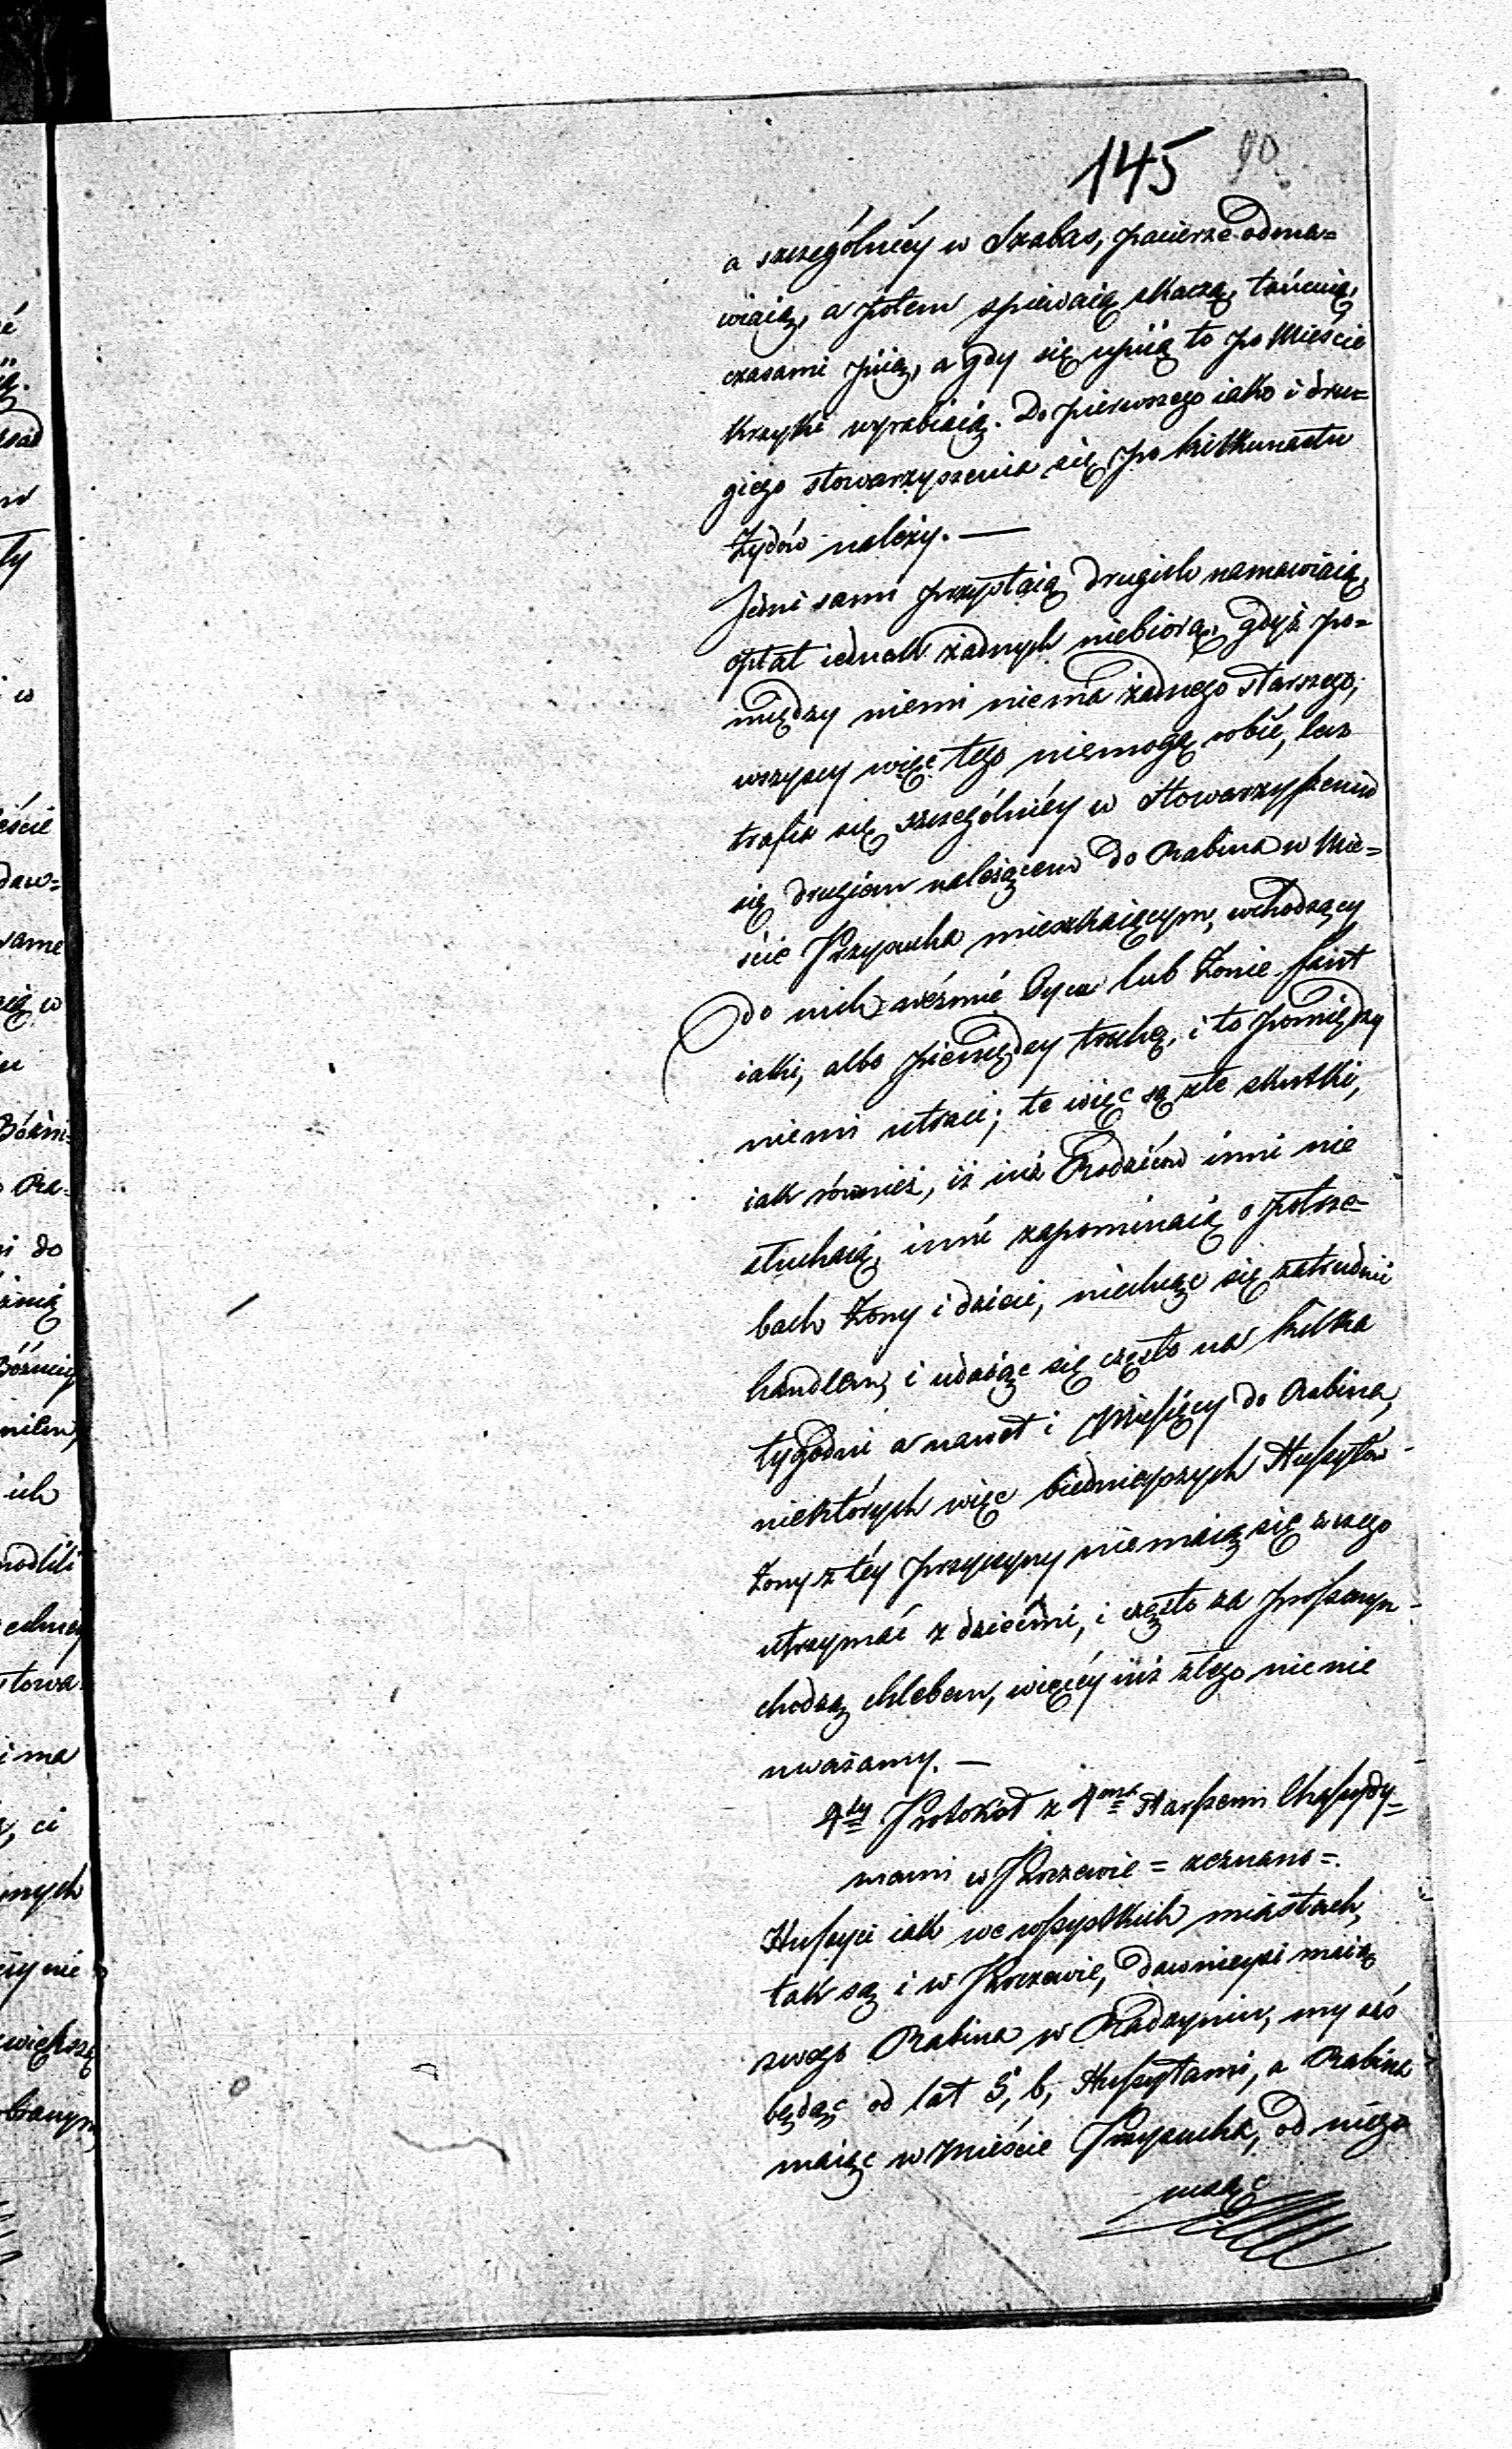 145 90.
a szczególniéy w Szabas, pacierze odma=
wiaią, a potem spiewaią skaczą, tańcuią,
czasami piią, a gdy się upiią to po Mieście
krzyki wyrabiaią. Do pierwszego iako i dru=
giego stowarzyszenia się po kilkunastu
Żydów należy. —
Jedni sami przystaią drugich namawiaią,
opłat iednak żadnych niebiorą, gdyż po=
między niemi niema żadnego starszego,
wszyscy więc tego niemogą robić, lecz
trafia się szczególniéy w Stowarzyszeniu
się drugiem należącem do Rabina w Mie=
ście Przysucha mieszkaiącym, wchodzący
do nich weźmie Oycu lub Żonie fant
iaki, albo pieniędzy trochę, i to pomiędzy
niemi utraci; te więc są złe skutki,
iak również, iż iuż Rodziców inni nie
słuchaią, inni zapominaią o potrze=
bach Żony i dzieci, niechcąc się zatrudnić
handlem, i udaiąc się często na kilka
tygodni a nawet i Miesięcy do Rabina,
niektórych więc biednieyszych Hussytów
Żony z téy przyczyny niemaią się z czego
utrzymać z dziećmi, i często za proszonym
chodzą chlebem, więcéy iuż złego nic nie
uważamy. —
4ty Protokół z 4ma Starszemi Chassydy=
mami w Parczewie = zeznano =.
Hussyci iak we wszystkich miastach,
tak są i w Parczewie, dawnieysi maią
swego Rabina w Radzyniu, my zaś
będąc od lat 5, 6, Hussytami, a Rabina
maiąc w Mieście Przysucha, od niego